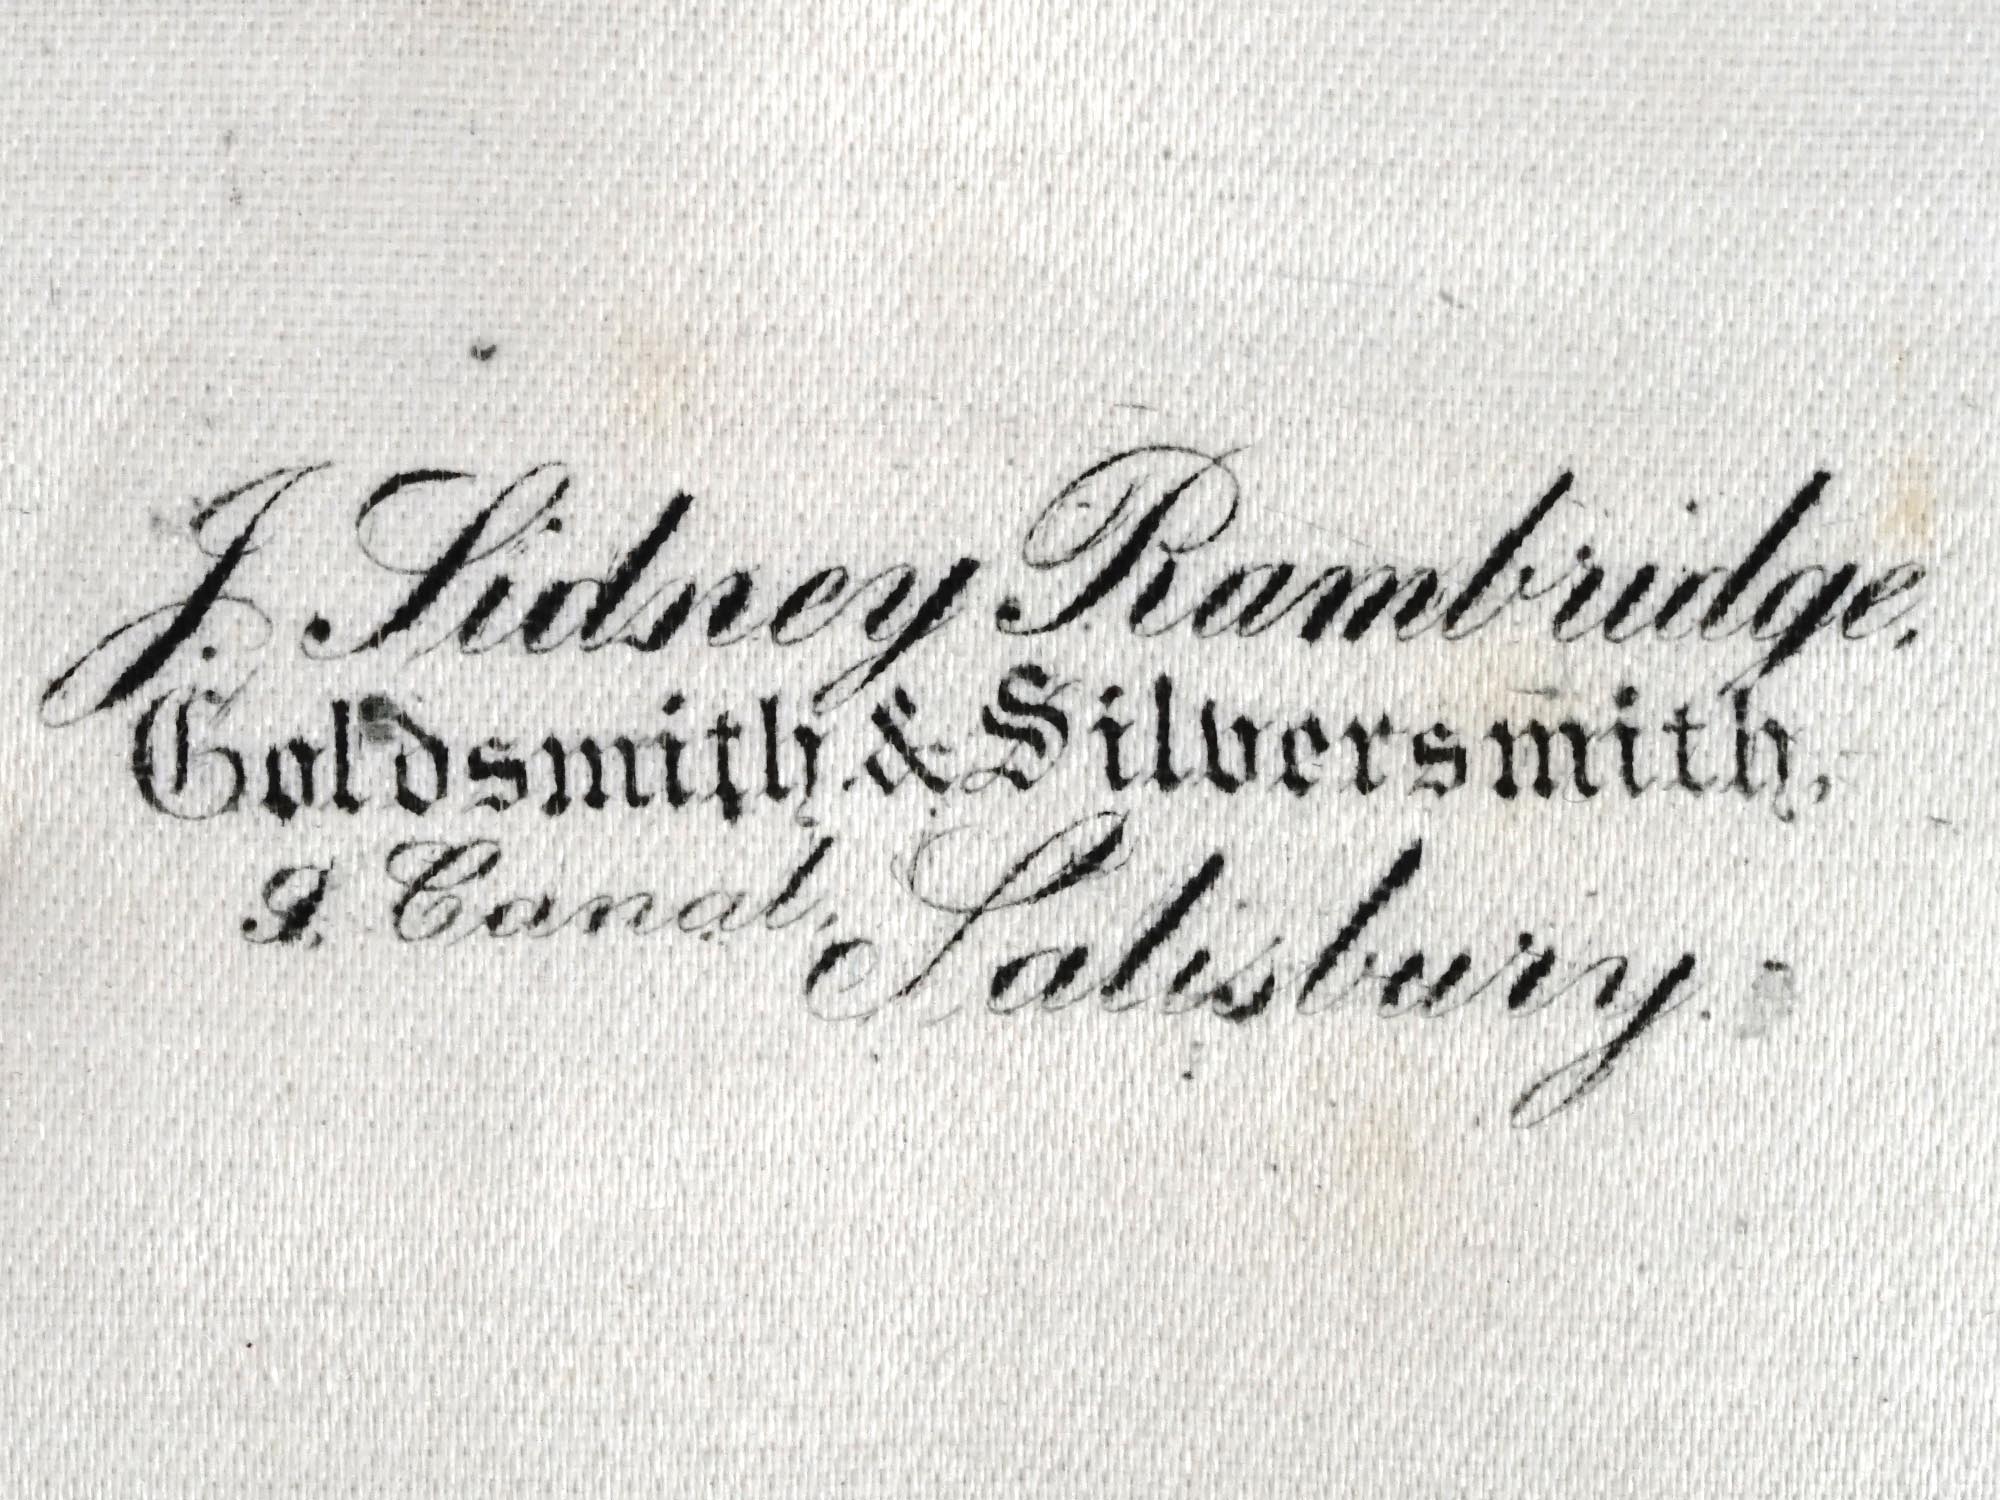 J. Sidney Rambridge.
Goldsmith & Silversmith,
Canal, Salisbury.